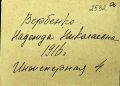 2532
Вербенко
Надежда Николаевна
1916г.
Инженерная 4.